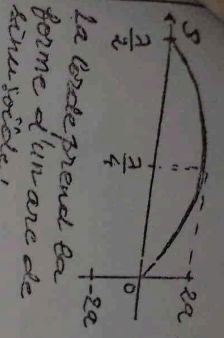 S
λ/2
λ/4
0
2a
-2a
La corde prend la
forme d'un arc de
sinusoïde.